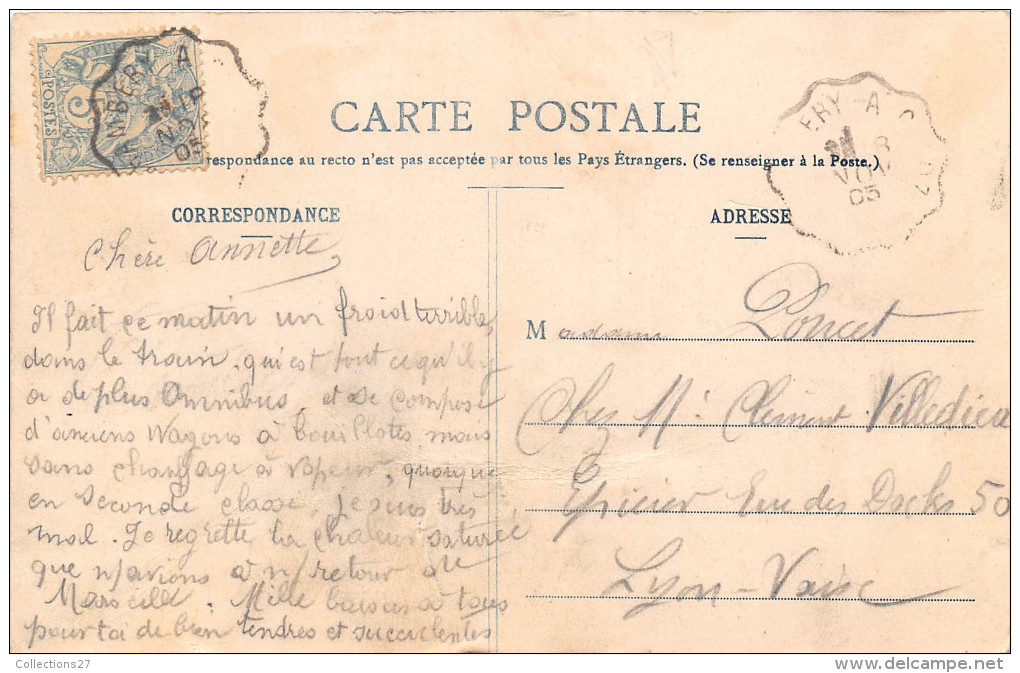 CARTE POSTALE
respondance au recto n'est pas acceptée par tous les Pays Étrangers. (Se renseigner à la Poste.)
POSTES
5
MBERY A
NO
05
ERY A
18
NOV
05
CORRESPONDANCE
Chère Annette,
Il fait ce matin un froid terrible
dans le train, qui est tout ce qu'il y
a de plus Omnibus, et se compose
d'anciens Wagons à bouillotes, mais
sans chauffage à vapeur, quoique
en seconde classe, je suis très
mal. Je regrette la chaleur saturée
que n/ avions à n/ retour de
Marseille. Mille baisers à tous
pour toi de bien tendres et succulentes
ADRESSE
Madame Poncet
Chez Mr Clément Villedieu
Epicier Rue des Docks 50
Lyon-Vaise
Collections27
delcampe.net